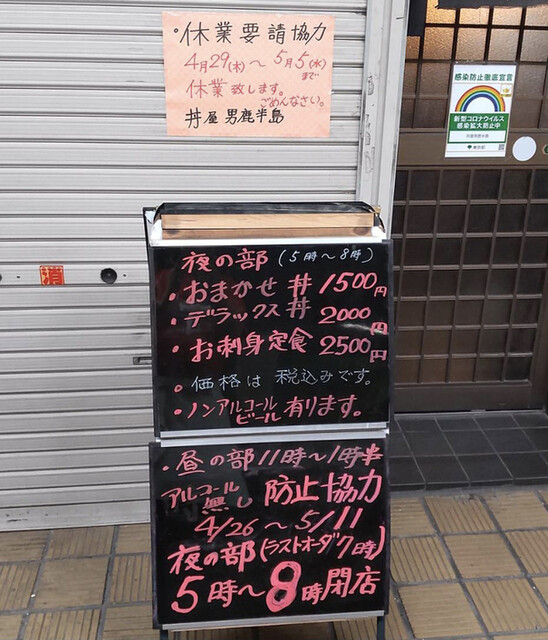 ・休業要請協力
4月29(木)～5月5(水)
まで
休業致します。
ごめんなさい。
丼屋 男鹿半島
感染防止徹底宣言
新型コロナウイルス
感染拡大防止中
東京都
消
夜の部(5時～8時)
・おまかせ丼1500円
・デラックス丼2000円
・お刺身定食2500円
・価格は税込みです。
・ノンアルコールビール有ります。
・昼の部11時～1時半
アルコール無し防止協力
4/26～5/11
夜の部(ラストオーダ7時)
5時～8時閉店